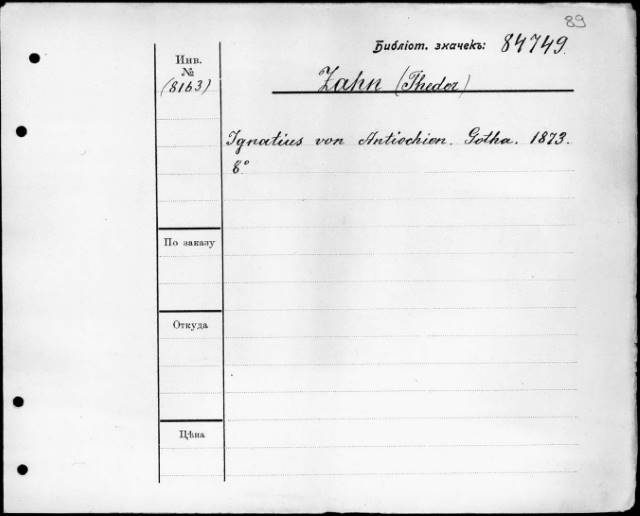 89
Библіот. значекъ: 84749.
Инв.
№
(8163)
Zahn (Thedor)
Ignatius von Antiochien. Gotha. 1873.
8°
По заказу
Откуда
Цѣна